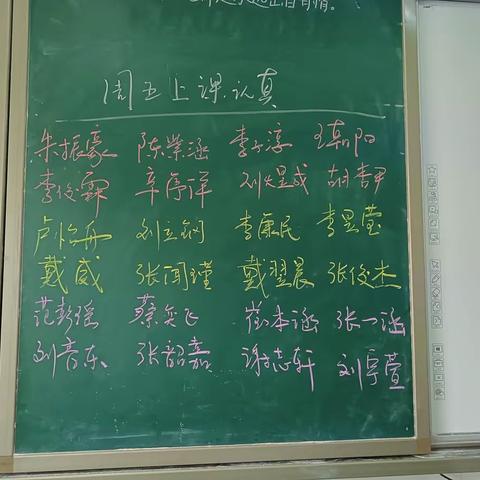 周五上课认真
朱振豪 陈荣涵 李子淳 王朝阳
李俊霖 辛厚洋 刘昊成 胡
卢 刘立钢 李康民 李昱莹
戴威 张闻瑾 戴翌晨 张俊杰
范彭瑶 蔡奕飞 崔本涵 张一涵
刘音东 张韶嘉 谢志轩 刘宇萱